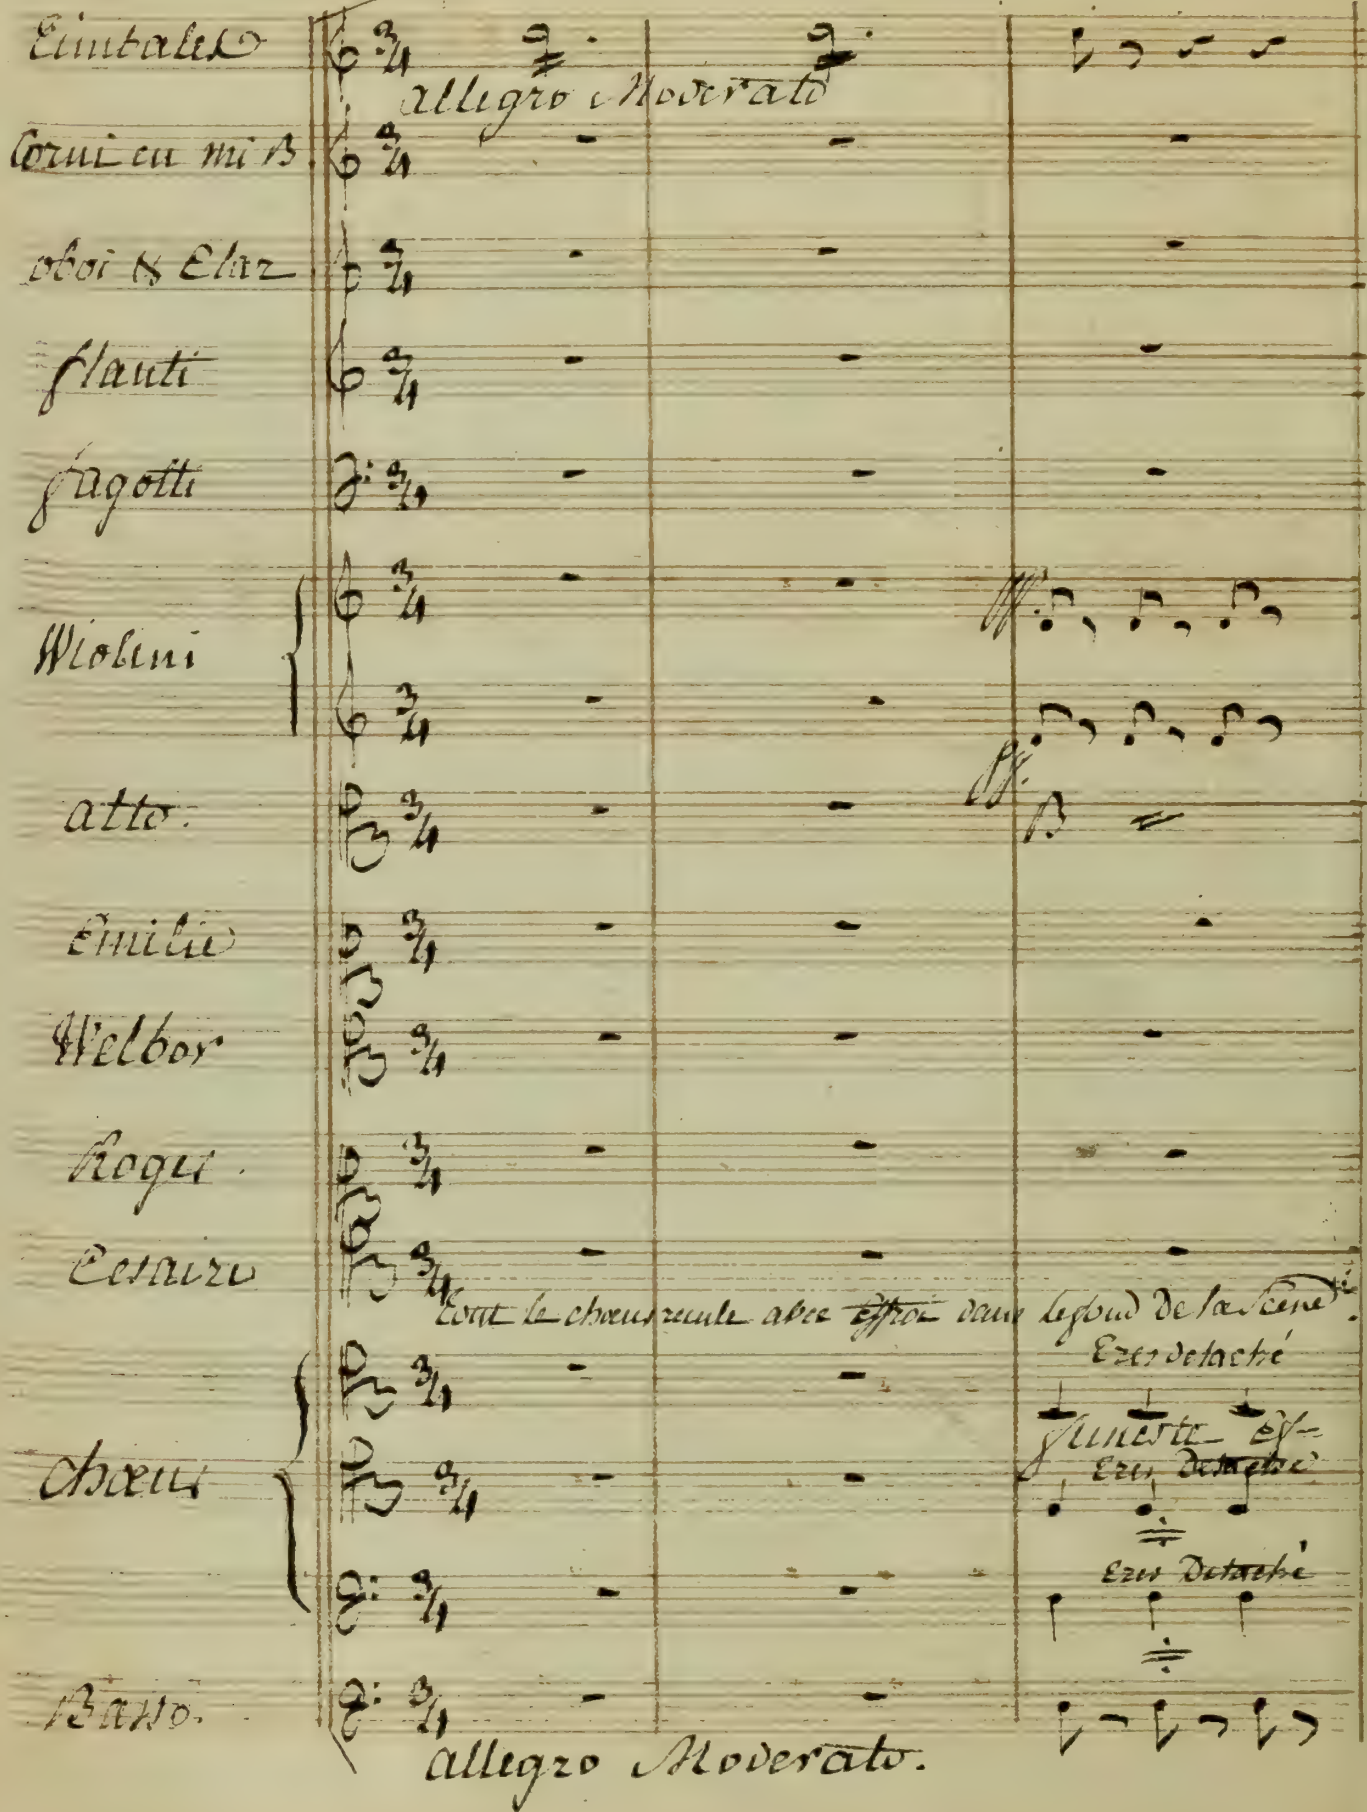 Timbales 3/4
Allegro Moderato
Corni en mi B 3/4
oboi & Clar 3/4
flauti 3/4
fagotti 3/4
Wiolini 3/4 ff.
3/4 ff.
alto. 3/4
Emilie 3/4
Welbor 3/4
Roger. 3/4
Cesaire 3/4
tout le chœur recule avec effroi dans le fond de la Scene.
Tres detaché
3/4
funeste ef-
Tres Detaché
chœur 3/4
Tres Detaché
3/4
Basso. 3/4
Allegro Moderato.